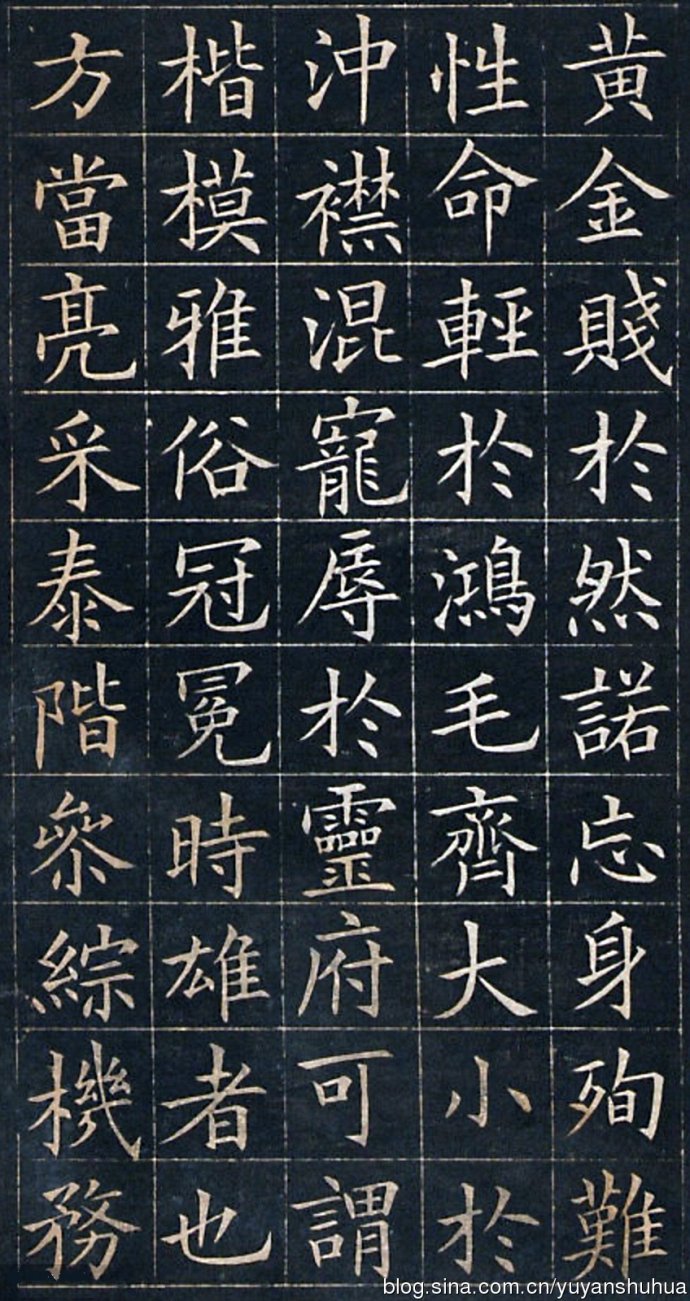 黄金賤於然諾忘身殉難
性命輕於鴻毛齊大小於
沖襟混寵辱於靈府可謂
楷模雅俗冠冕時雄者也
方當亮采泰階參綜機務
blog.sina.com.cn/yuyanshuhua